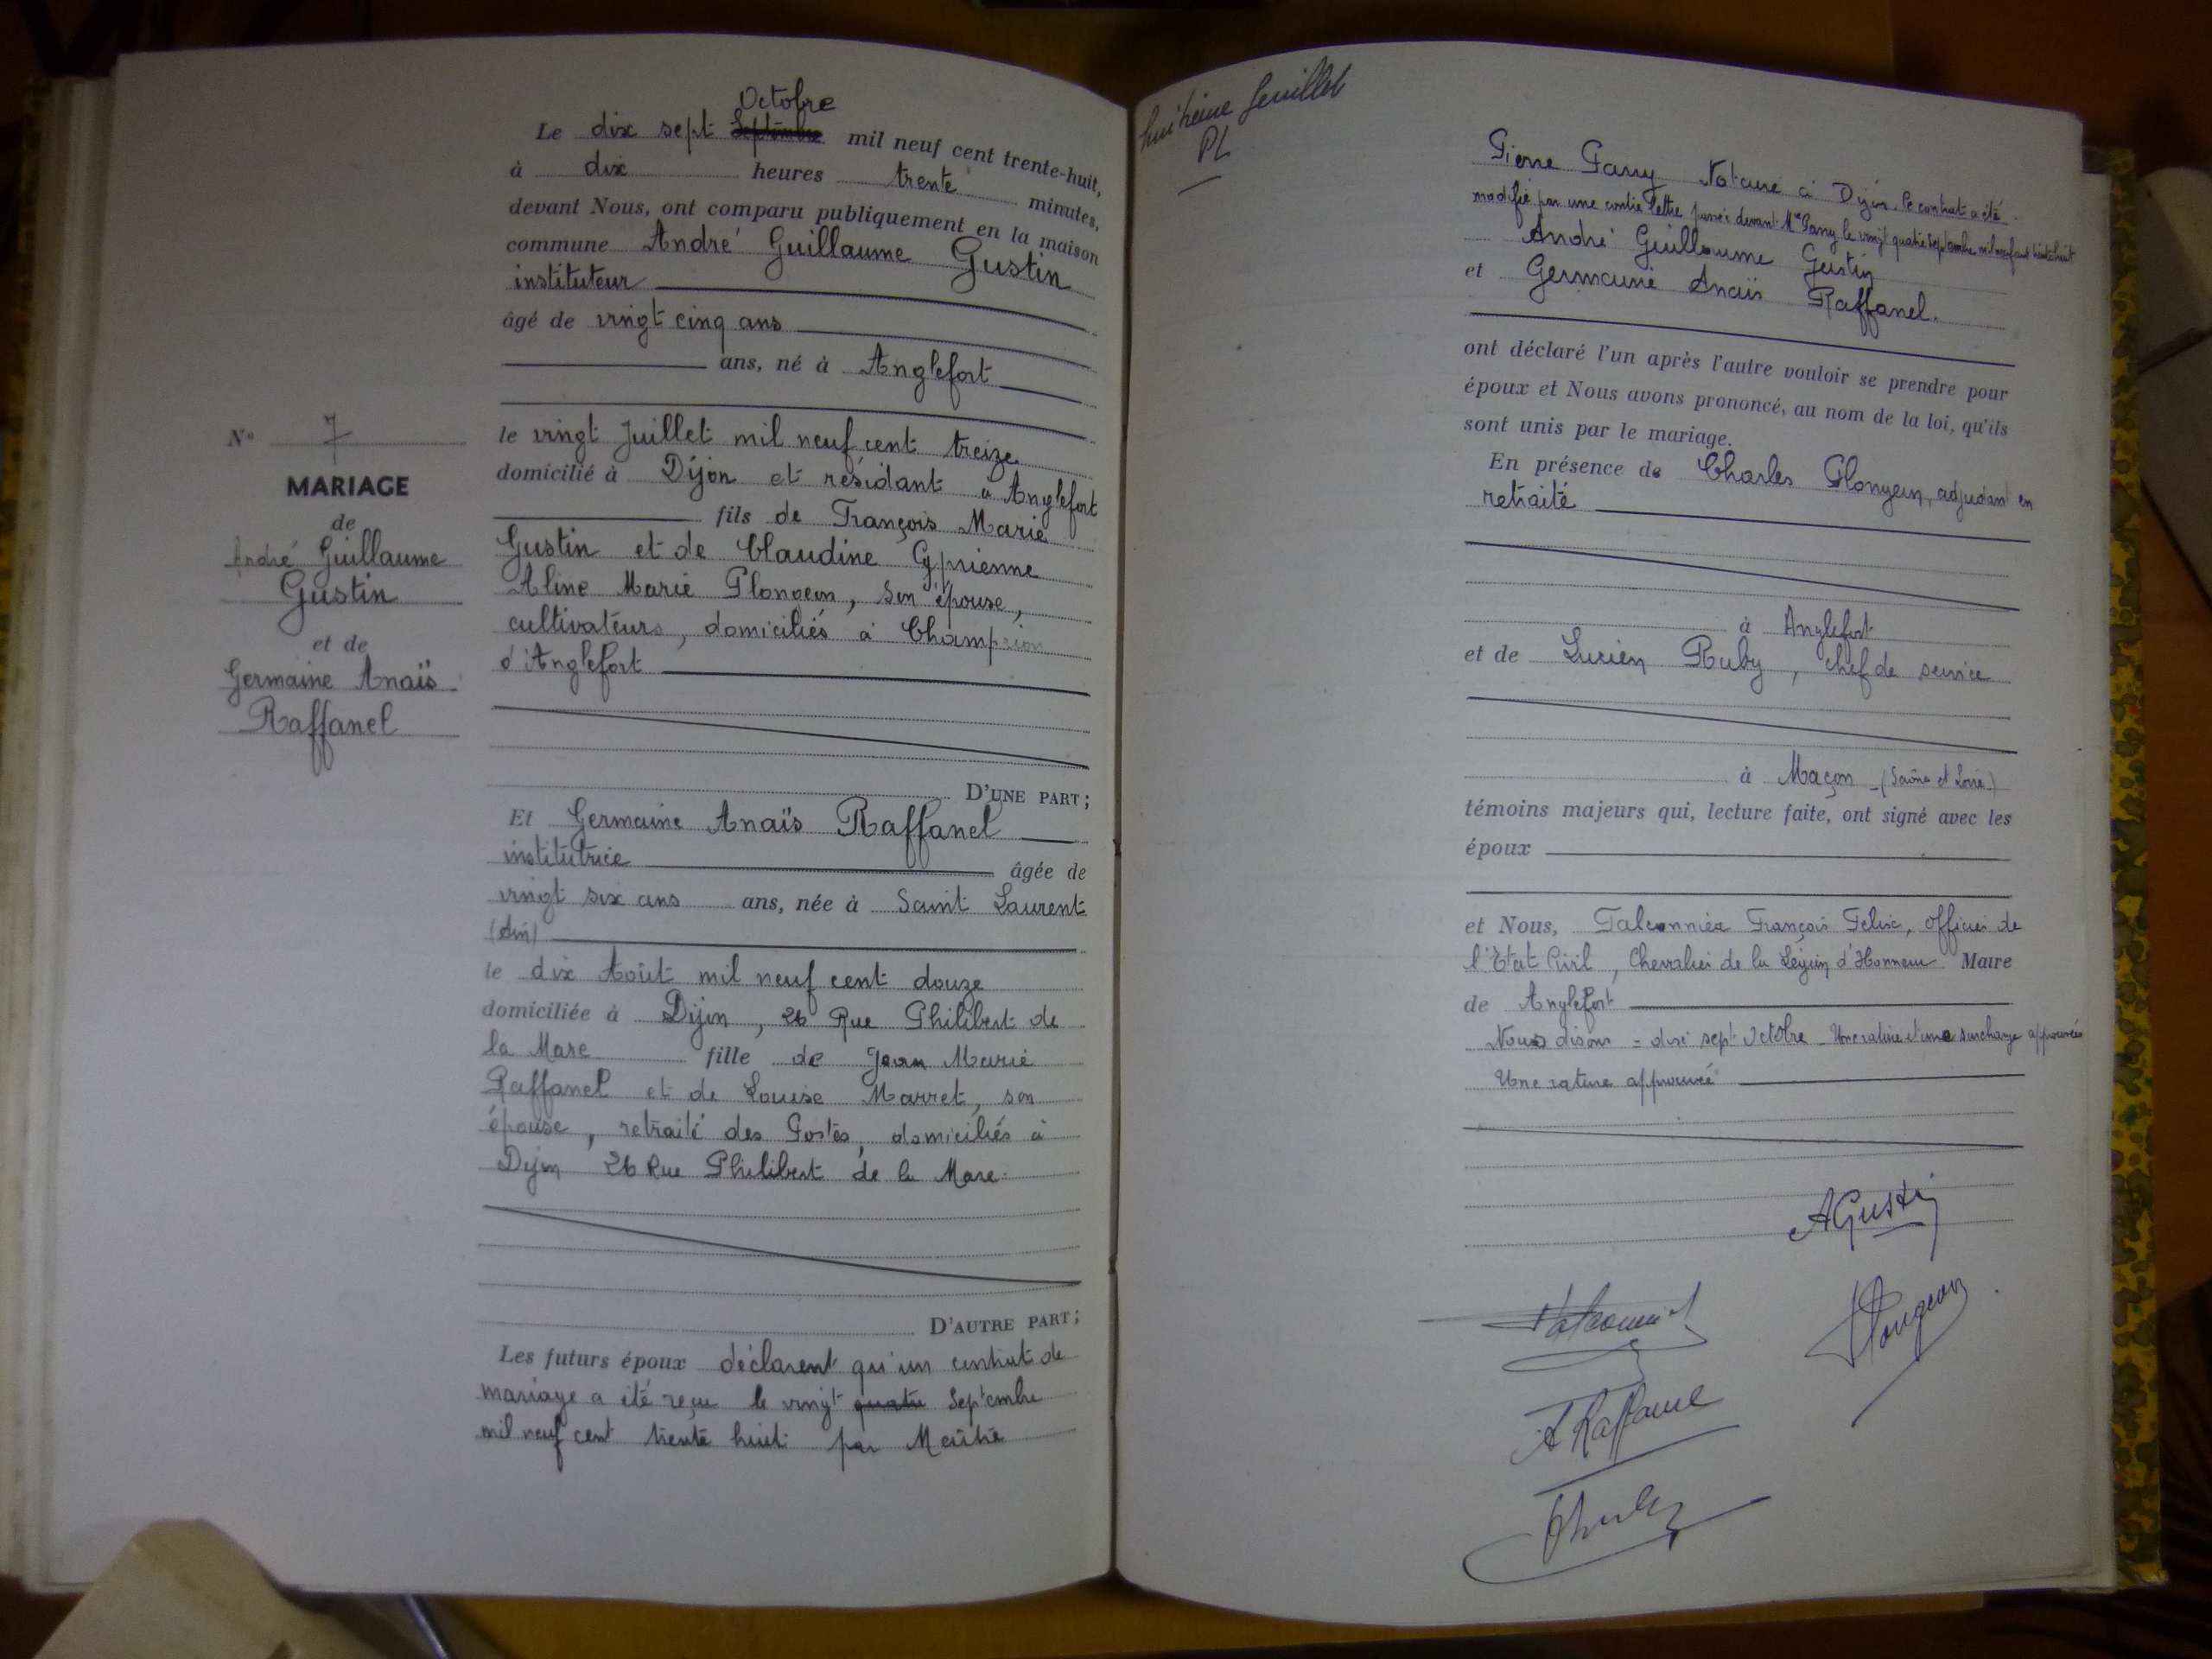 Octobre
Le dix sept Septembre mil neuf cent trente-huit,
à dix heures trente minutes,
devant Nous, ont comparu publiquement en la maison
commune André Guillaume Gustin
instituteur
âgé de vingt cinq ans
ans, né à Anglefort
le vingt Juillet mil neuf cent treize
domicilié à Dijon et résidant à Anglefort
fils de François Marie
Gustin et de Claudine Cyprienne
Aline Marie Plongeon, son épouse,
cultivateurs, domiciliés à Champrion
d'Anglefort
D'UNE PART ;
Et Germaine Anaïs Raffanel
institutrice âgée de
vingt six ans ans, née à Saint Laurent
(Ain)
le dix Août mil neuf cent douze
domiciliée à Dijon, 26 Rue Philibert de
la Mare fille de Jean Marie
Raffanel et de Louise Marret, son
épouse, retraité des Postes, domiciliés à
Dijon 26 Rue Philibert de la Mare.
D'AUTRE PART ;
Les futurs époux déclarent qu'un contrat de
mariage a été reçu le vingt quatre Septembre
mil neuf cent trente huit par Maître
N° 7
MARIAGE
de
André Guillaume
Gustin
et de
Germaine Anaïs
Raffanel
huitième feuillet
PL
Pierre Pany Notaire à Dijon. Le contrat a été
modifié par une contre lettre passée devant Me Pany le vingt quatre septembre mil neuf cent trente huit
André Guillaume Gustin
et Germaine Anaïs Raffanel.
ont déclaré l'un après l'autre vouloir se prendre pour
époux et Nous avons prononcé, au nom de la loi, qu'ils
sont unis par le mariage.
En présence de Charles Plongeon, adjudant en
retraite
à Anglefort
et de Lucien Ruby, chef de service
à Maçon (Saône et Loire)
témoins majeurs qui, lecture faite, ont signé avec les
époux
et Nous, Falconnier François Félix, officier de
l'Etat Civil, Chevalier de la Légion d'Honneur Maire
de Anglefort
Nous disons = dix sept Octobre - Une rature et une surcharge approuvées
Une rature approuvée
AGustin
Plongeon
Falconnier
A Raffanel